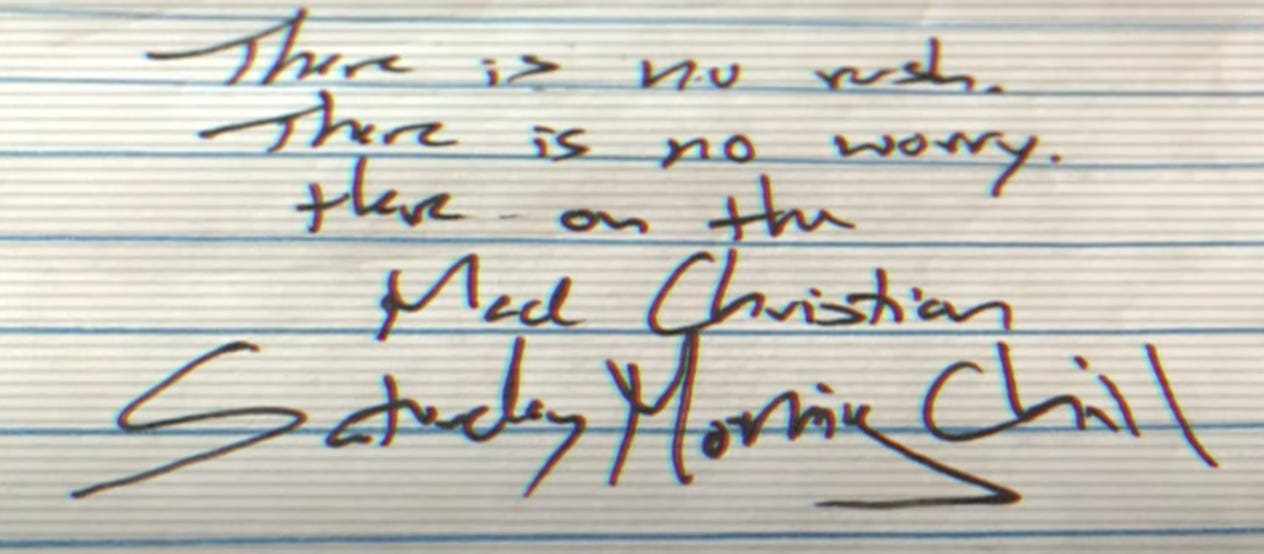 There is no rush.
There is no worry.
there on the
Mad Christian
Saturday Morning Chill